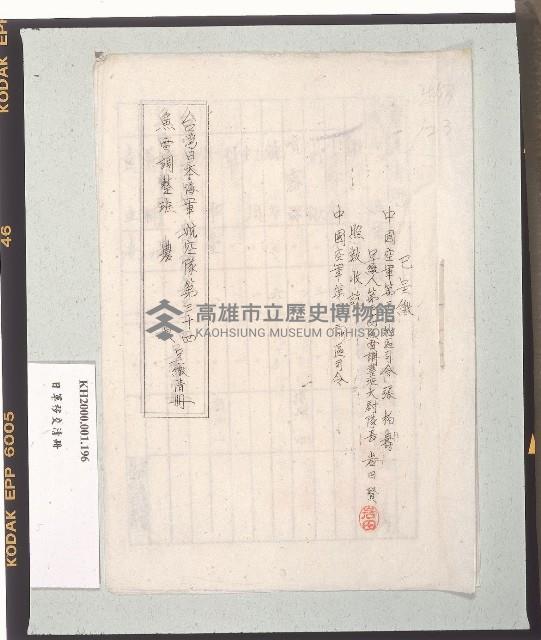 已呈繳
中國空軍第
區司令張柏壽
呈繳人第
魚雷調整班大尉隊長 岩田
照數收訖
中國空軍第
區司令
岩田
台灣日本海軍航空隊第二十四
魚雷調整班
呈繳清冊
高雄市立歷史博物館
KAOHSIUNG MUSEUM OF HISTORY
KH2000.001.196
日軍移交清冊
KODAK EPP
46
KODAK EPP 6005